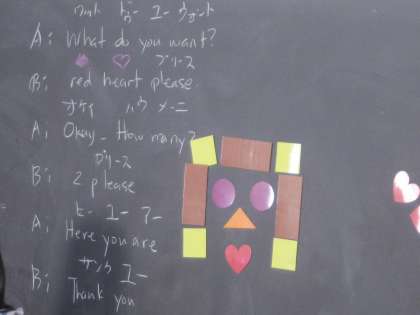 A: What do you want?
プリース
B: red heart please.
オケイ ハウ メーニ
A: Okay. How many?
プリース
B: 2 please
ヒー ユー アー
A: Here you are
サンク ユー
B: Thank you